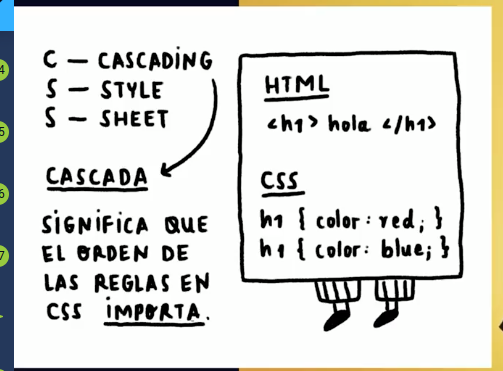 C — CASCADING
S — STYLE
S — SHEET
CASCADA
SIGNIFICA QUE
EL ORDEN DE
LAS REGLAS EN
CSS IMPORTA.
HTML
<h1> hola </h1>
CSS
h1 { color: red; }
h1 { color: blue; }
4
5
6
7